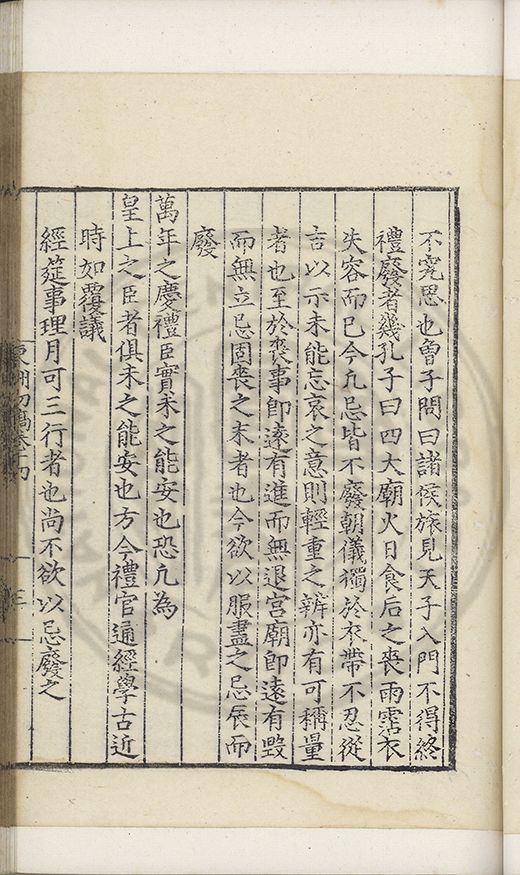 不究思也曾子問曰諸侯旅見天子入門不得終
禮廢者幾孔子曰四大廟火日食后之喪雨霑衣
失容而已今凡忌皆不廢朝儀獨於衣帶不忍從
吉以示未能忘哀之意則輕重之辨亦有可稱量
者也至於喪事即遠有進而無退宮廟即遠有毀
而無立忌固喪之末者也今欲以服盡之忌辰而
廢
萬年之慶禮臣實未之能安也恐凡為
皇上之臣者俱未之能安也方今禮官通經學古近
時如覆議
經筵事理月可三行者也尚不欲以忌廢之
三